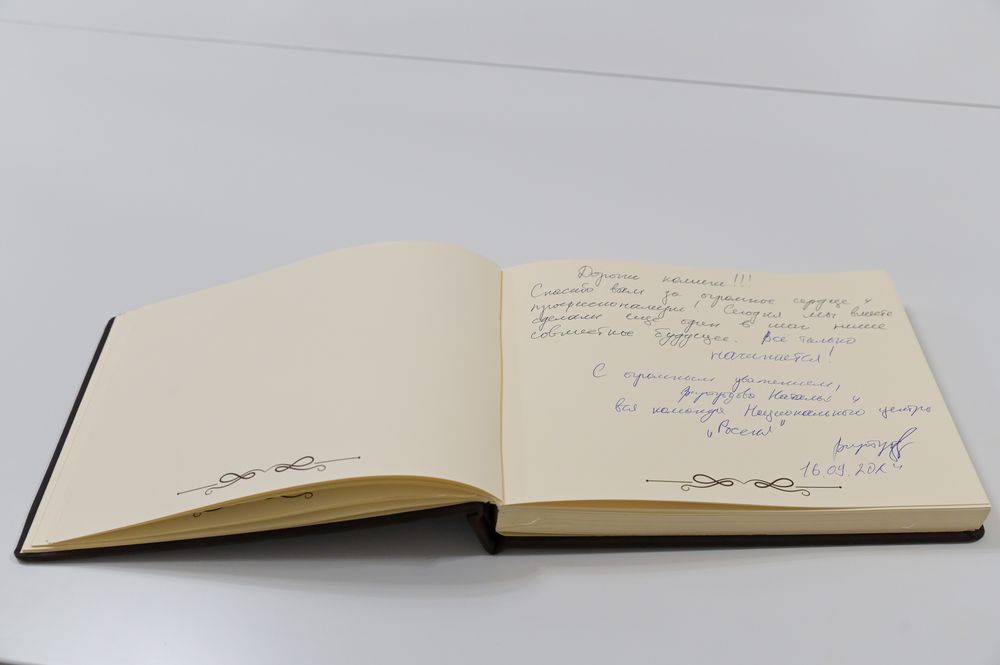 Дорогие коллеги!!!
Спасибо вам за огромное сердце и
профессионализм! Сегодня мы вместе
сделали еще один шаг в наше
совместное будущее. Все только
начинается!
С огромным уважением,
Виртуозова Наталья и
вся команда Национального центра
„Россия"
16.09.2024